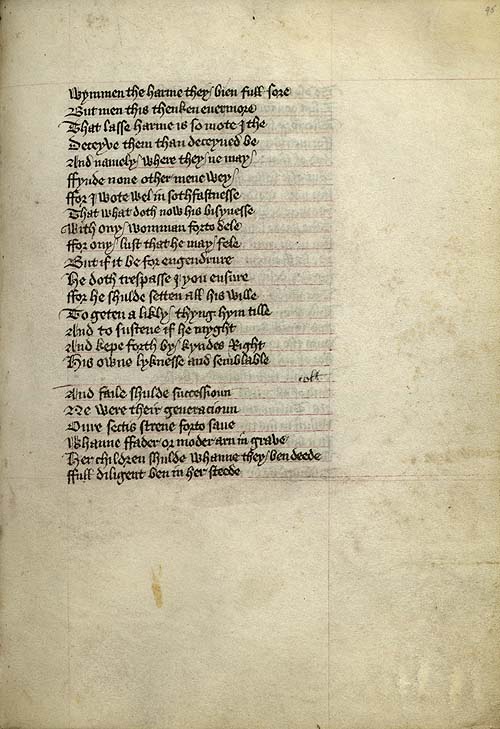 96
Wymmen the harme they bien full sore
But men this thenken euermore
That lasse harme is so mote I the
Deceyve them than deceyued be
And namely where they ne may
ffynde none other mene wey
ffor I wote wel in sothfastnesse
That what doth now his bisynesse
With ony womman forto dele
ffor ony lust that he may fele
But if it be for engendrure
He doth trespasse I you ensure
ffor he shulde setten all his wille
To geten a likly thyng hym tille
And to sustene if he myght
And kepe forth by kyndes Right
His owne lyknesse and semblable
colt
And faile shulde successioun
Ne were their generacioun
Oure sectis strene forto saue
Whanne ffader or moder arn in grave
Her children shulde whanne they ben deede
ffull diligent ben in her steede